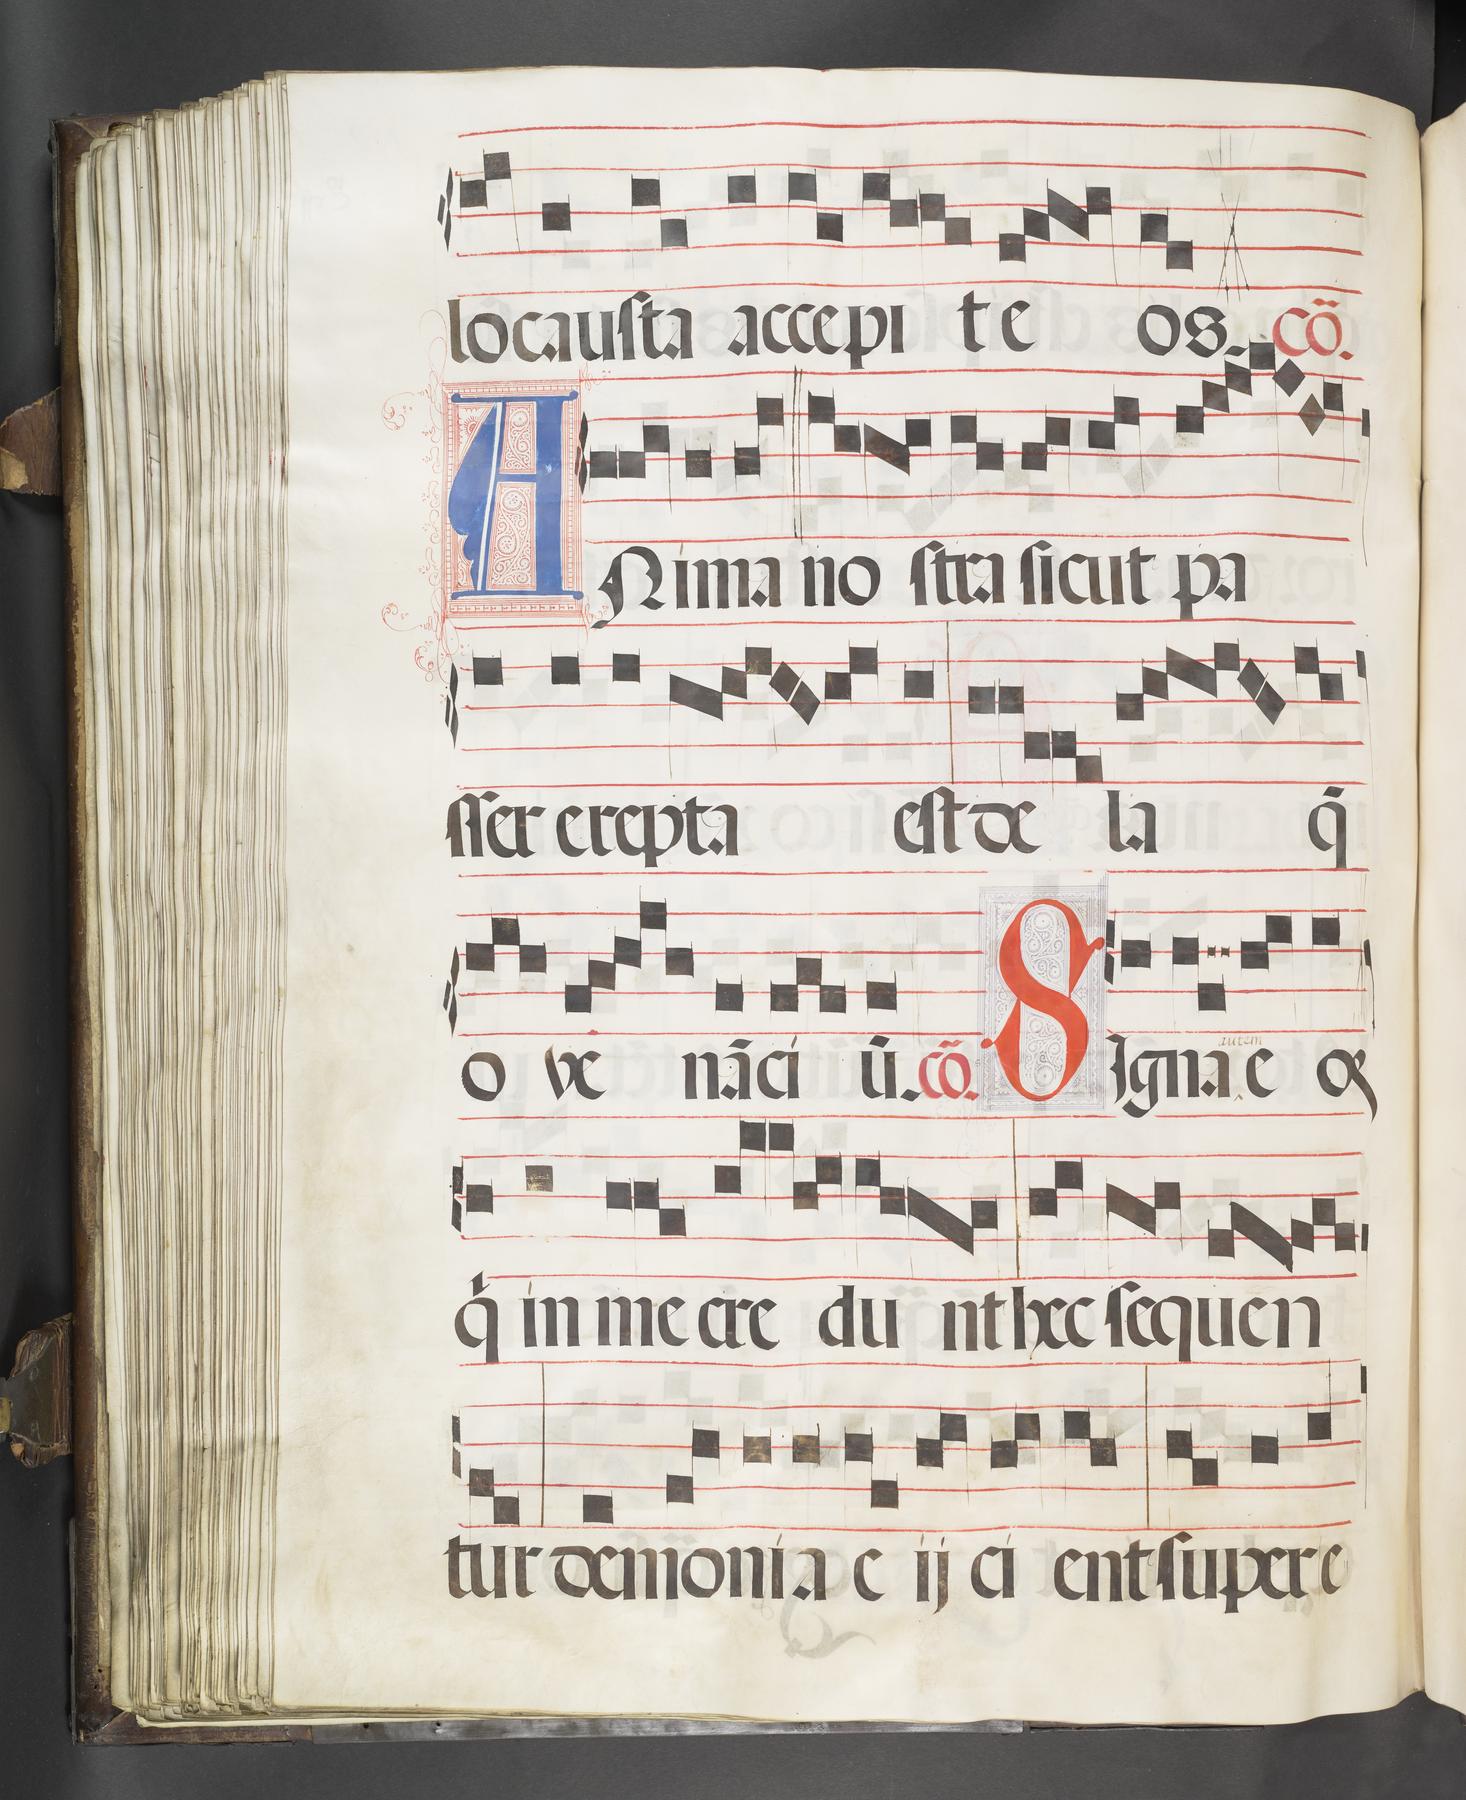 locausta accepi te os. cõ.
ANima no stra sicut pa
sser erepta est de la q̃
o ve nãci ũ. cõ. SIgna e os
autem
q̇ in me cre du nt hec sequen
tur demonia e ij ci ent super e